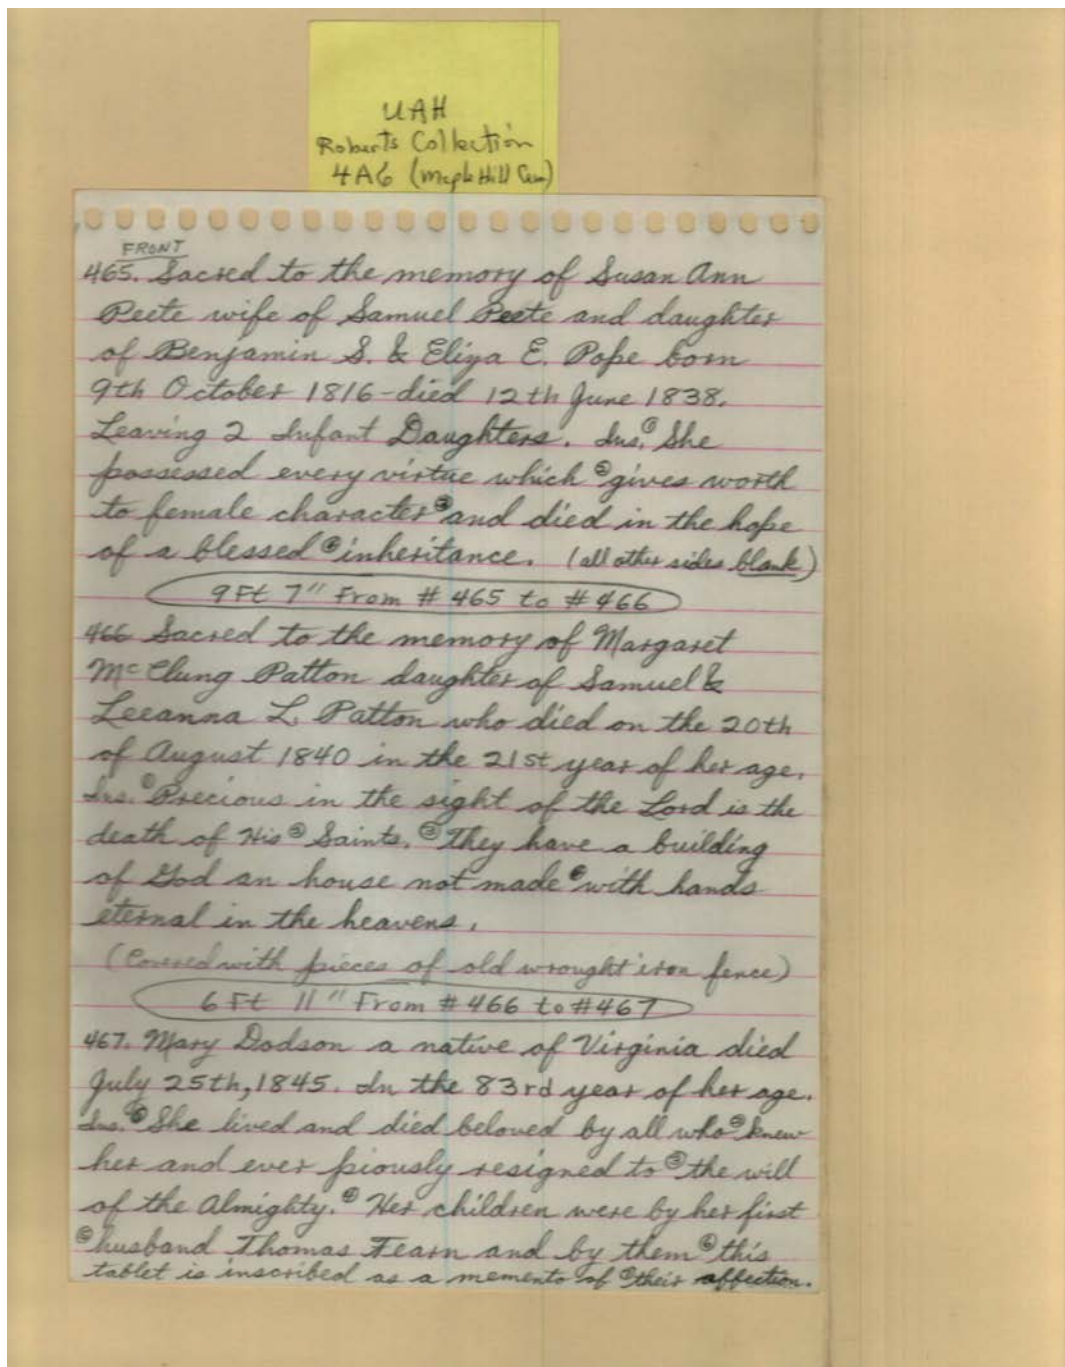 UAH
Roberts Collection
4A6 (Maple Hill Cem)
FRONT
465. Sacred to the memory of Susan Ann
Peete wife of Samuel Peete and daughter
of Benjamin S. & Eliza E. Pope born
9th October 1816-died 12th June 1838.
Leaving 2 Infant Daughters. Ins.① She
possessed every virtue which ②gives worth
to female character③and died in the hope
of a blessed ④inheritance. (all other sides blank)
9Ft 7" From # 465 to # 466
466 Sacred to the memory of Margaret
McClung Patton daughter of Samuel &
Leeanna L. Patton who died on the 20th
of August 1840 in the 21st year of her age.
Ins.①Precious in the sight of the Lord is the
death of His② Saints. ③They have a building
of God an house not made④with hands
eternal in the heavens.
(Covered with pieces of old wrought iron fence)
6 Ft 11" From # 466 to #467
467. Mary Dodson a native of Virginia died
July 25th, 1845. In the 83rd year of her age.
Ins.①She lived and died beloved by all who②knew
her and ever piously resigned to③the will
of the Almighty.④ Her children were by her first
⑤husband Thomas Fearn and by them⑥this
tablet is inscribed as a memento of ⑦their affection.